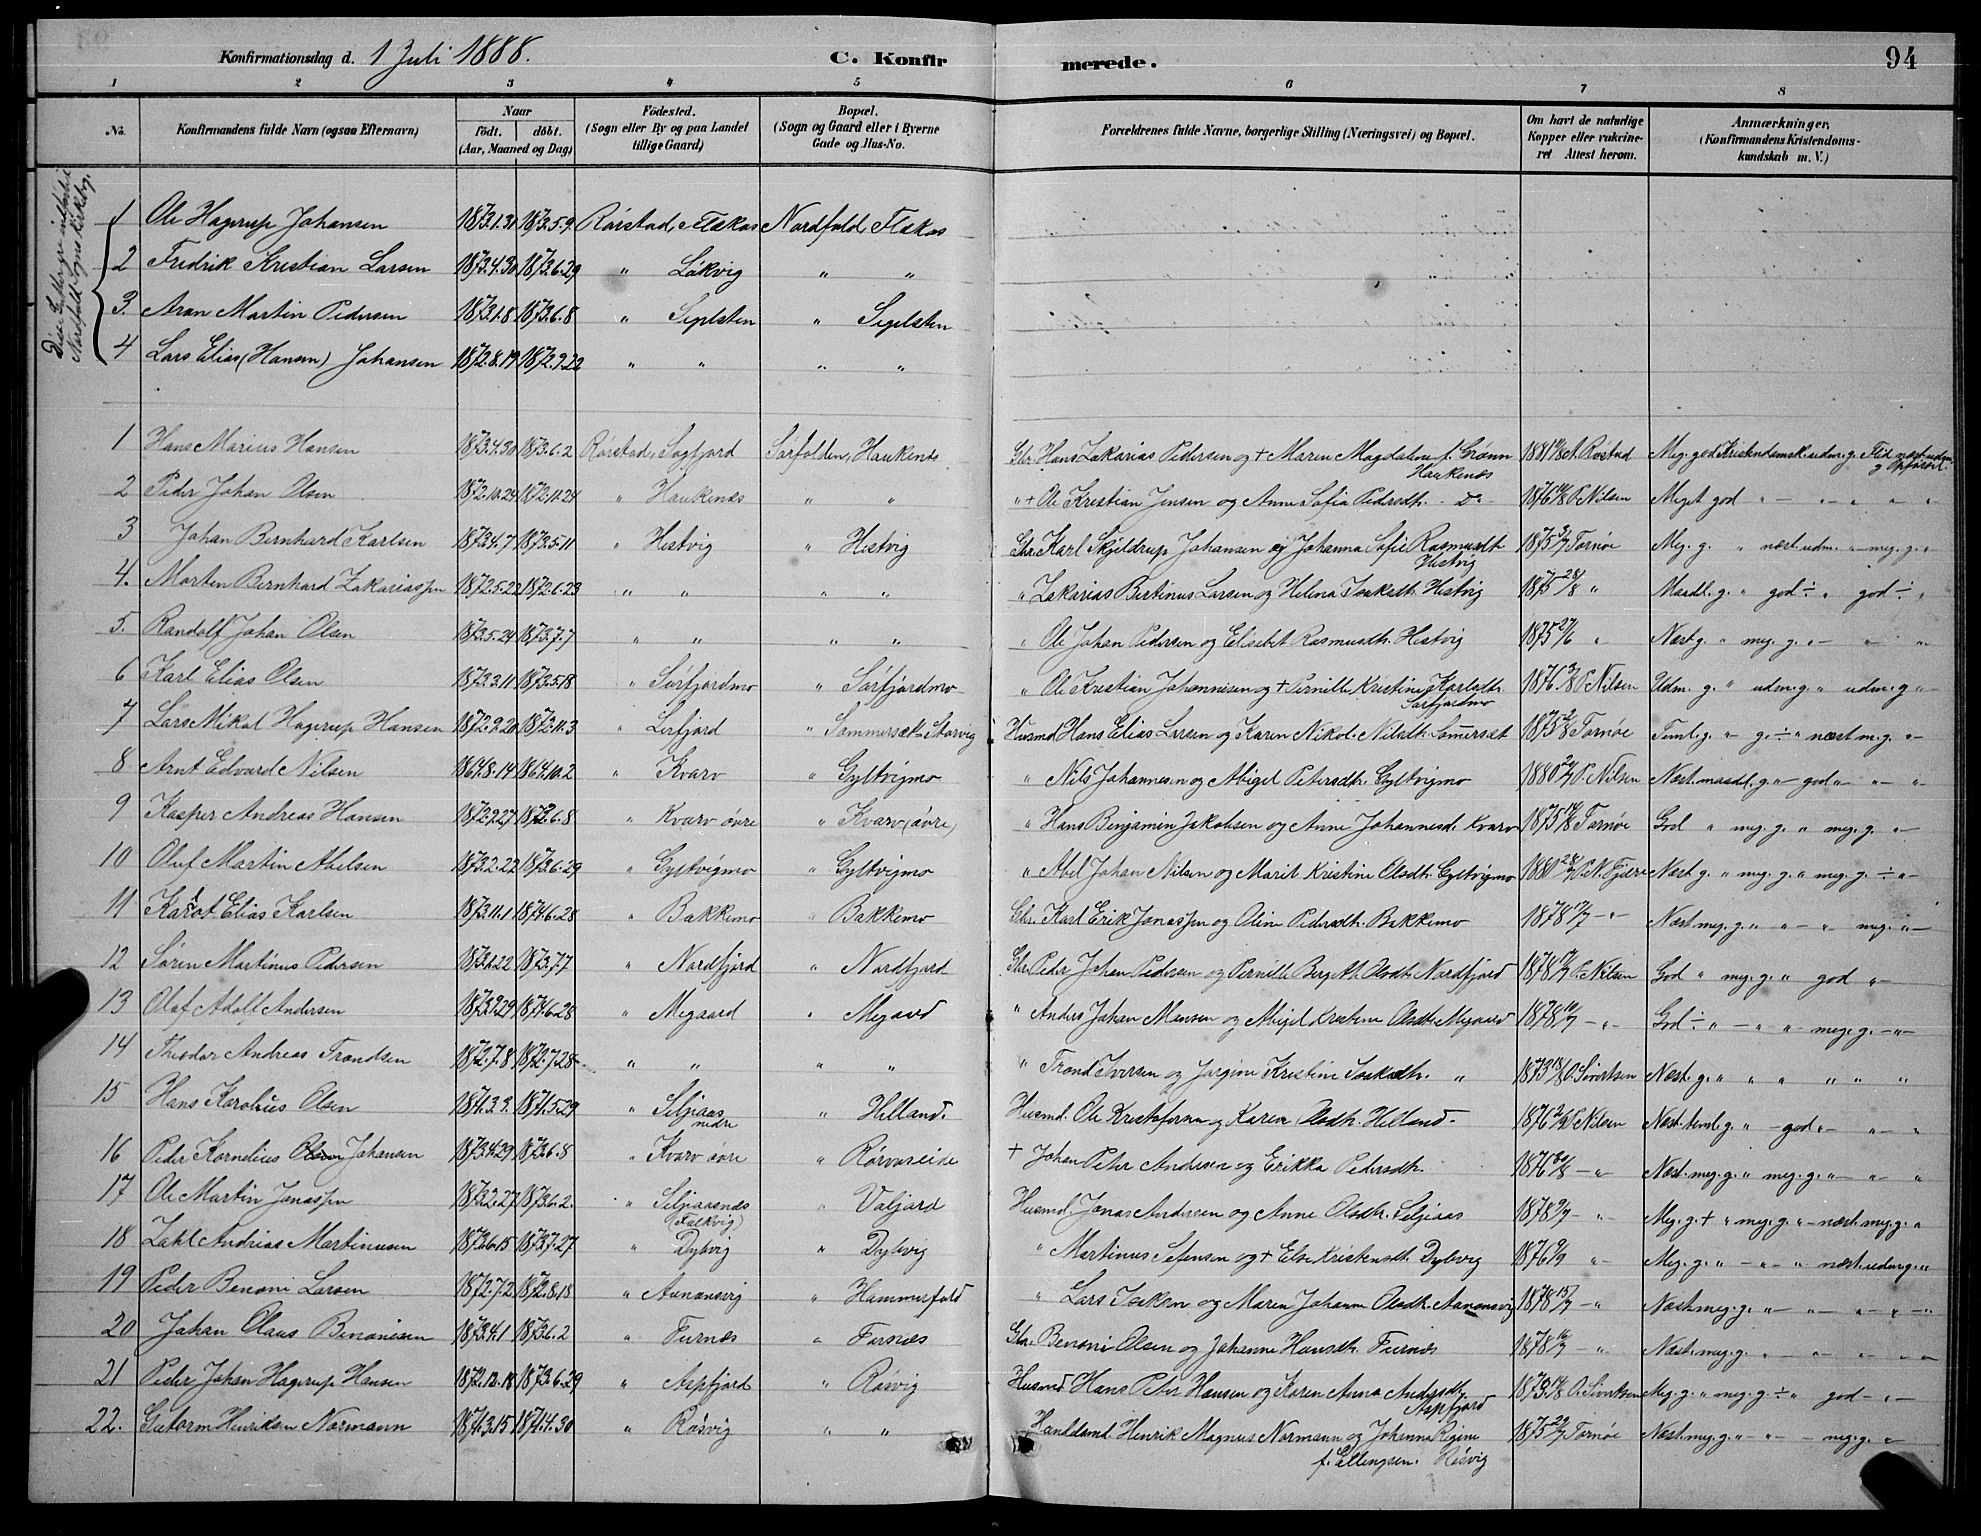 Konfirmationsdag d. 1 Juli 1888. C. Konfirmerede. 94
1 2 3 4 5 6 7 8
No. Konfirmandens fulde Navn (ogsaa Efternavn) Naar födt. döbt. (Aar, Maaned og Dag) Födested. (Sogn eller By og paa Landet tillige Gaard) Bopæl. (Sogn og Gaard eller i Byerne Gade og Hus-No. Forældrenes fulde Navne, borgerlige Stilling (Næringsvei) og Bopæl. Om havt de naturlige Kopper eller vakcineret Attest herom. Anmærkninger, (Konfirmandens Kristendomskundskab m. V.)
Nordfold Sogns Kirkebog.
1 Ole Hagerup Johansen 1873.1.31 1873.5.9 Rörstad, Flakas Nordfold, Flakas
2 Fredrik Kristian Larsen 1873.4.30 1873.6.29 " Låkvig " "
3. Aron Martin Pedersen 1873.1.8 1873.6.8 " Sigelsten " Sigelsten
4 Lars Elias (Hansen) Johansen 1872.8.19 1872.9.22 " " " "
1 Hans Marius Hansen 1873.4.30 1873.6.2 Rörstad, Sagfjord Sörfolden, Haukenæs Gbr. Hans Zakarias Pedersen og + Maren Magdalene f. Grønn Haukenæs 1881 A. Röstad Meg. god Kristendomsk. udm. g. Flid næst udm. g. Opførsel.
2 Peder Johan Olsen 1872.10.24 1872.11.24 " Haukenæs " " " + Ole Kristian Jensen og Anne Sofie Pedersdtr. - D - 1876 P. Nilsen Meget god " - " - " " "
3 Johan Bernhard Karlsen 1873.4.7 1873.5.11 " Hestvig " Hestvig Gbr. Karl Skjeldrup Johansen og Johanna Sofie Rasmusdtr. Hestvig 1875 Tornøe Meg. g. " næst. udm. " meg. g. "
4. Morten Bernhard Zakariassen 1872.5.22 1872.6.23 " " " " " Zakarias Bertinus Larsen og Helena Isaksdtr. Hestvig 1875 28/8 " Maadl. g. " god ÷ " god ÷ "
5. Randolf Johan Olsen 1873.5.24 1873.7.7 " " " " " Ole Johan Pedersen og Elisabet Rasmusdtr. Hestvig 1875 27/6 " Næst g. " meg. g. " - " "
6 Karl Elias Olsen 1873.3.11 1873.5.18 " Sörfjordmo " Sörfjordmo " Ole Kristian Johannesen og + Pernille Kristine Karlsdtr. Sörfjordmo 1876 P. Nilsen Udm. g. " udm. g. " udm. g. "
7 Lars Mikal Hagerup Hansen 1872.9.20 1872.11.3 " Lerfjord " Sommersæt - Storvig Husmd. Hans Elias Larsen og Karen Nikol. Nilsdtr. Somersæt 1875 Tornøe Teml. g. " g. ÷ " næst m. g. "
8 Arnt Edvard Nilsen 1864.8.14 1864.10.2 " Kvarv " Gyltvigmo " Nils Johannesen og Abigel Petersdtr. Gyltvigmo 1880 P. Nilsen Næst. maadl. g. " god " - " - "
9 Kasper Andreas Hansen 1872.9.27 1872.6.8 " Kvarv övre " Kvarv (övre) " Hans Benjamin Jakobsen og Anne Johannesd. Kvarv 1875 Tornøe God " meg. g. " meg. g. "
10 Oluf Martin Abelsen 1873.2.22 1873.6.29 " Gyltvigmo " Gyltvigmo " Abel Johan Nilsen og Marit Kristine Olsdtr. Gyltvigmo 1880 P. N. Fjære Næst g. " meg. g. " meg. g. ÷ "
11 Karot Elias Karlsen 1873.11.1 1874.6.28 " Bakkemo " Bakkemo Gbr. Karl Erik Jonassen og Oline Pedersdtr. Bakkemo 1878 - " - Næst meg. g. " " - " meg. " -
12 Sören Martinus Pedersen 1873.1.22 1873.7.7 " Nordfjord " Nordfjord Gbr. Peder Johan Pedersen og Pernille Birgitte Olsdtr. Nordfjord 1878 P. Nilsen God " meg. g. " god " -
13 Olaf Adolf Andersen 1873.9.29 1874.6.28 " Megaard " Megaard " Anders Johan Monsen og Abigel Kristine Olsdtr. Megaard 1878 - " - God ÷ " - " " meg. g. - " -
14 Theodor Andreas Trondsen 1872.7.8 1872.7.28 " " " " " Trond Iversen og Jørgine Kristine Isaksdtr. " 1873 O. Sivertsen Næst. g. " " " " " "
15 Hans Karolius Olsen 1871.3.3 1871.5.29 " Seljaas nedre " Helland. Husmd. Ole Kristofersen og Karen Olsdtr. Helland - 1876 P. Nilsen Næst. teml. g. " - god " - " "
16 Peder Kornelius Olsen Johansen 1873.4.29 1873.6.8 " Kvarv övre " Rörvaseide + Johan Peter Andersen og Erikka Pedersdtr. 1876 - " Næst. meg. g. " meg. g. " - " "
17 Ole Martin Jonassen 1873.2.27 1873.6.2. " Seljaasnæs (Falkvig) " Valjord Husmd. Jonas Andersen og Anne Olsdtr. Seljaas 1878 9/7 - " Meg. g. + " meg. g. " - næst. meg. g. "
18 Zakl Andrias Martinusen 1873.6.15 1873.7.27 " Dybvig " Dybvig " Martinus Stensen og + Else Kristensdtr. Dybvig 1876 " - Meg. g. " - " " næst. udm. g. "
19 Peder Benoni Larsen 1872.7.2 1872.8.18 " Aanansvig " Hammerfald " Lars Isaksen og Maren Johanne Olsdtr. Aanonsvig 1878 15/7 - " Næst. meg. g. " - " - " " - "
20 Johan Olaus Benonisen 1873.4.1 1873.6.2 " Furnæs " Furnæs Gbr. Benoni Olsen og Johanne Hansdtr. Furnæs 1878 16/7 - " Næst. meg. g. " - " " "
21 Peder Johan Hagerup Hansen 1872.12.18 1873.6.29 " Aspfjord " Rösvig Husmd. Hans Peter Hansen og Karen Anna Andersdtr. Aspfjord 1873 O. Sivertsen Meg. g. " meg. g. ÷ " god - " -
22. Guttorm Henriksen Normann 1871.3.15 1871.4.30 " Rösvig " " Handelsmd. Henrik Magnus Normann og Johanna Regine f. Ellingsen. Rösvig 1875 Tornøe Næst. meg. g. " - " - meg. g. " -